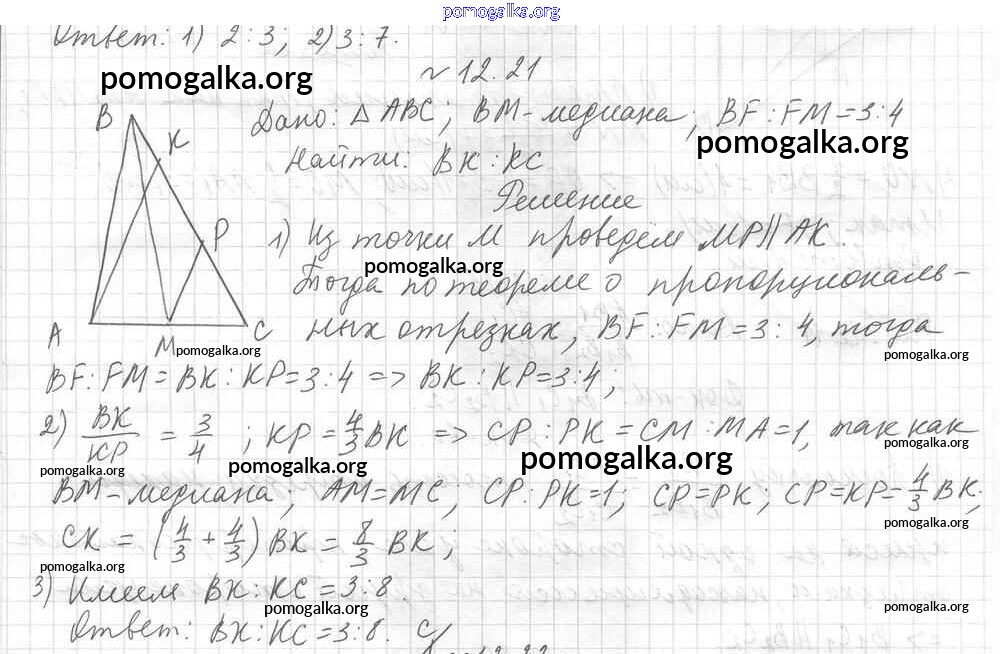 pomogalka.org
Ответ: 1) 2:3; 2) 3:7.
№ 12.21
pomogalka.org
B
K
P
A
M
C
Дано: Δ ABC; BM - медиана; BF : FM = 3:4
pomogalka.org
Найти: BK : KC
Решение
1) Из точки M проведём MP || AK.
pomogalka.org
Тогда по теореме о пропорциональ-
ных отрезках, BF : FM = 3 : 4, тогда
pomogalka.org
pomogalka.org
BF : FM = BK : KP = 3:4 => BK : KP = 3:4;
2) BK/KP = 3/4 ; KP = 4/3 BK => CP : PK = CM : MA = 1, так как
pomogalka.org
pomogalka.org
pomogalka.org
pomogalka.org
BM - медиана; AM = MC, CP : PK = 1; CP = PK; CP = KP = 4/3 BK;
pomogalka.org
CK = (4/3 + 4/3) BK = 8/3 BK;
pomogalka.org
3) Имеем BK : KC = 3:8.
pomogalka.org
pomogalka.org
Ответ: BK : KC = 3:8.